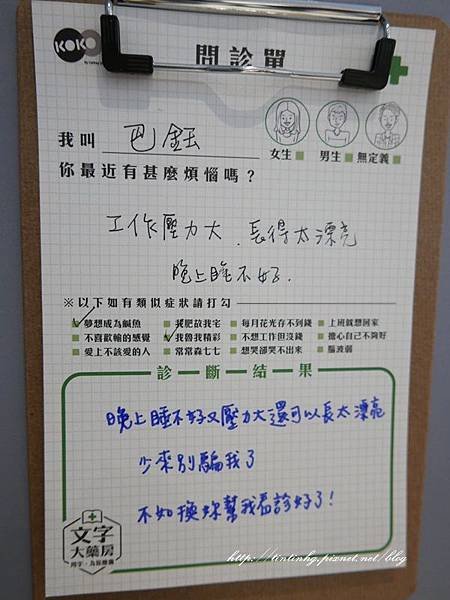 KOKO
問診單
我叫 巴鈺
女生 男生 無定義
你最近有甚麼煩惱嗎？
工作壓力大、長得太漂亮
晚上睡不好.
※以下如有類似症狀請打勾
夢想成為鹹魚 我肥故我宅 每月花光存不到錢 上班就想回家
不喜歡輸的感覺 我魯我精彩 不想工作但沒錢 擔心自己不夠好
愛上不該愛的人 常常森七七 想哭卻哭不出來 腦波弱
診斷結果
晚上睡不好又壓力大還可以長太漂亮
少來別騙我了
不如換妳幫我看診好了！
文字
大藥房
用字‧為你療傷
http://tintinhg.pixnet.net/blog